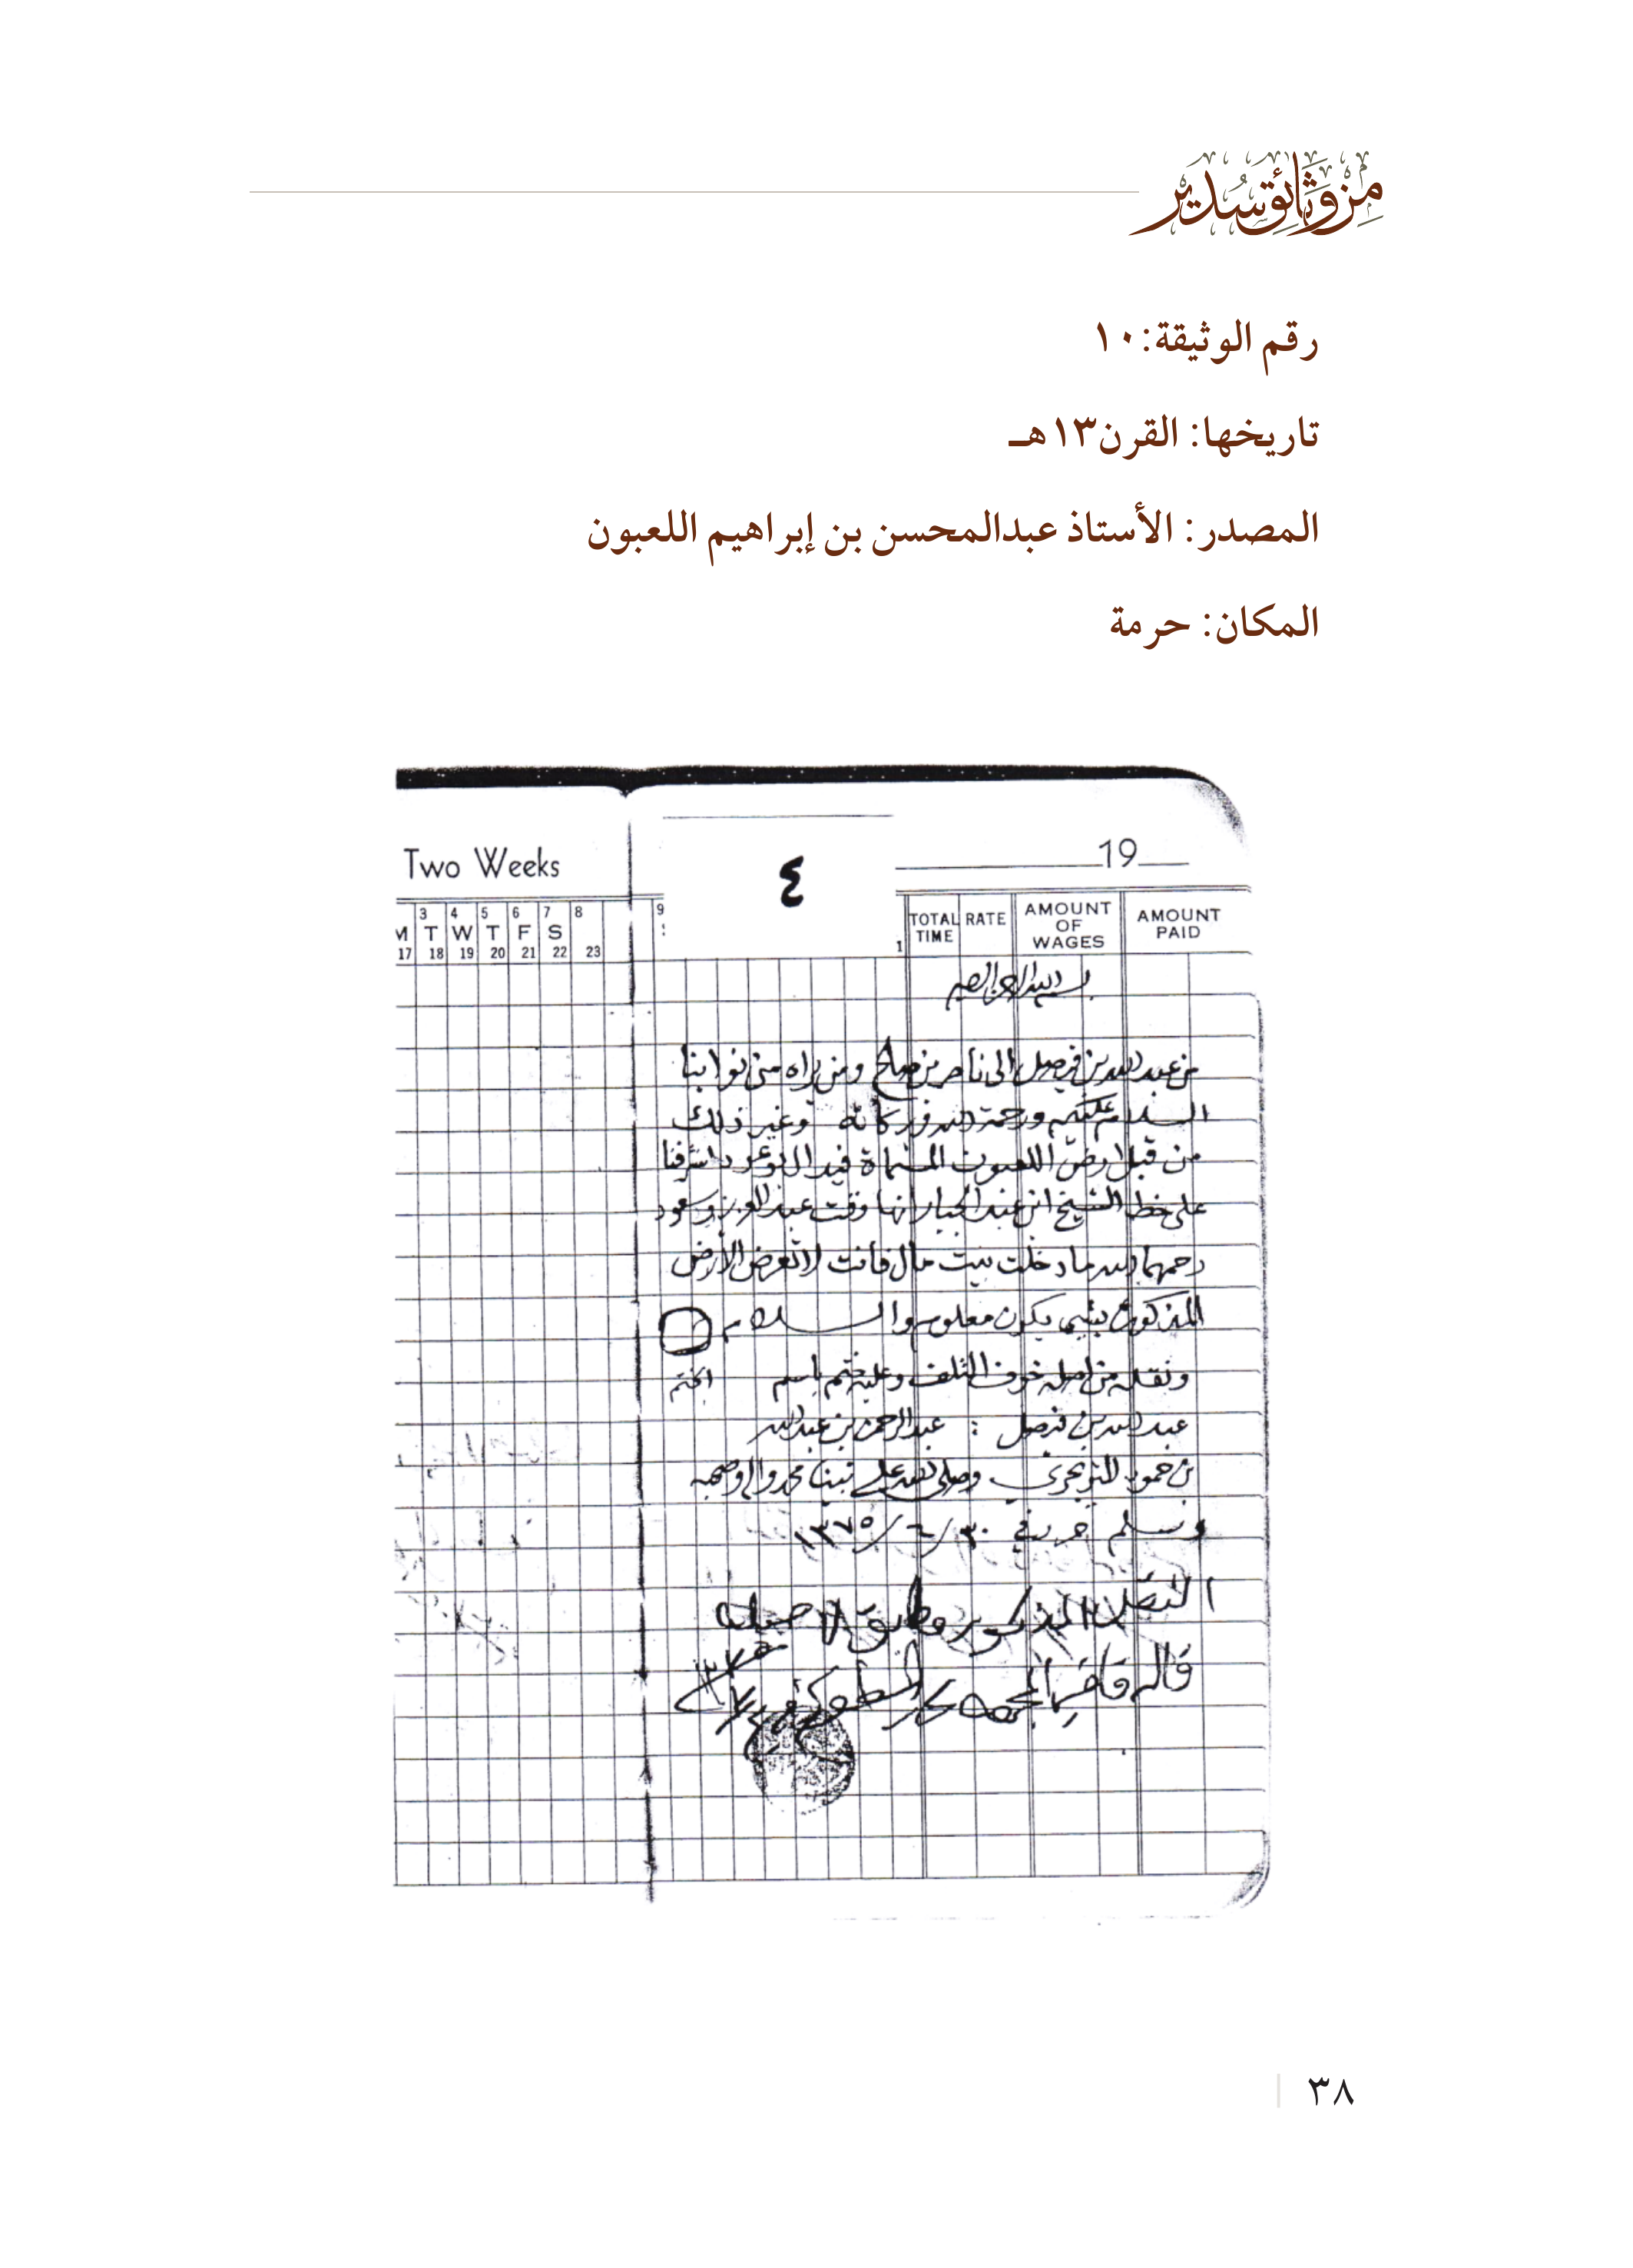 من وثائق سدير
رقم الوثيقة: ١٠
تاريخها: القرن ١٣هـ
المصدر: الأستاذ عبدالمحسن بن إبراهيم اللعبون
المكان: حرمة
Two Weeks
٤
19
3 4 5 6 7 8 9
M T W T F S
17 18 19 20 21 22 23
1
TOTAL TIME RATE AMOUNT OF WAGES AMOUNT PAID
بسم الله الرحمن الرحيم
من عبد الله بن فيصل الى ناصر بن صالح ومن يراه من نوابنا
السلام عليكم ورحمة الله وبركاته وغير ذلك
من قبل ارض اللعبون المسماة فيد اشرفنا
على خط الشيخ ابن عبد الجبار انها وقت عبد العزيز وسعود
رحمهما الله ما دخلت بيت مال فانت لا تعرض الأرض
المذكورة بشي يكون معلوم والسلام
ونقله من اصله خوف التلف وعليه ختم باسم الختم
عبد الله بن فيصل : عبد الرحمن بن عبد الله
بن حمود التويجري وصلى الله على نبينا محمد واله وصحبه
وسلم حرر في ٣٠/٦/١٣٧٥
النقل المذكور مطابق لاصله
قاله قاضي المجمعة
٣٨